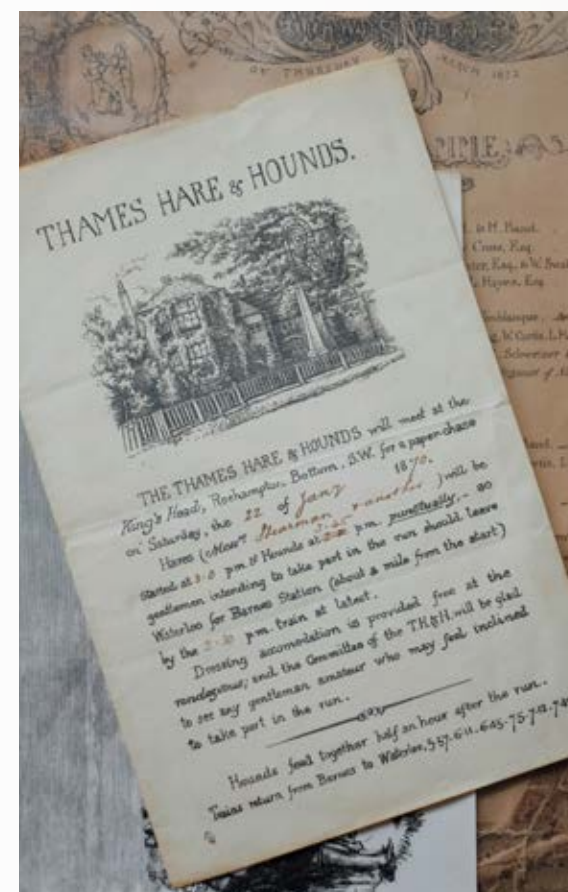 OF THURSDAY MARCH 1872
THAMES HARE & HOUNDS.
THE THAMES HARE & HOUNDS will meet at the
King's Head, Roehampton, Bottom, S.W. for a paper-chase
on Saturday, the 22 of Jany 1870.
Hares (Messrs & another) will be
started at 3.0 p.m. & Hounds at p.m. punctually, – so
gentlemen intending to take part in the run should leave
Waterloo for Barnes Station (about a mile from the start)
by the 2.30 p.m. train at latest.
Dressing accomodation is provided free at the
rendezvous; and the Committee of the T.H.&H. will be glad
to see any gentleman amateur who may feel inclined
to take part in the run.
Hounds feed together half an hour after the run.
Trains return from Barnes to Waterloo, 5.57.-6.11.-6.45.-7.5.-7.12.-7.4
& H. Rand.
Cross, Esq.
Esq. & W.
Hayns, Esq.
W. Curtis, L.